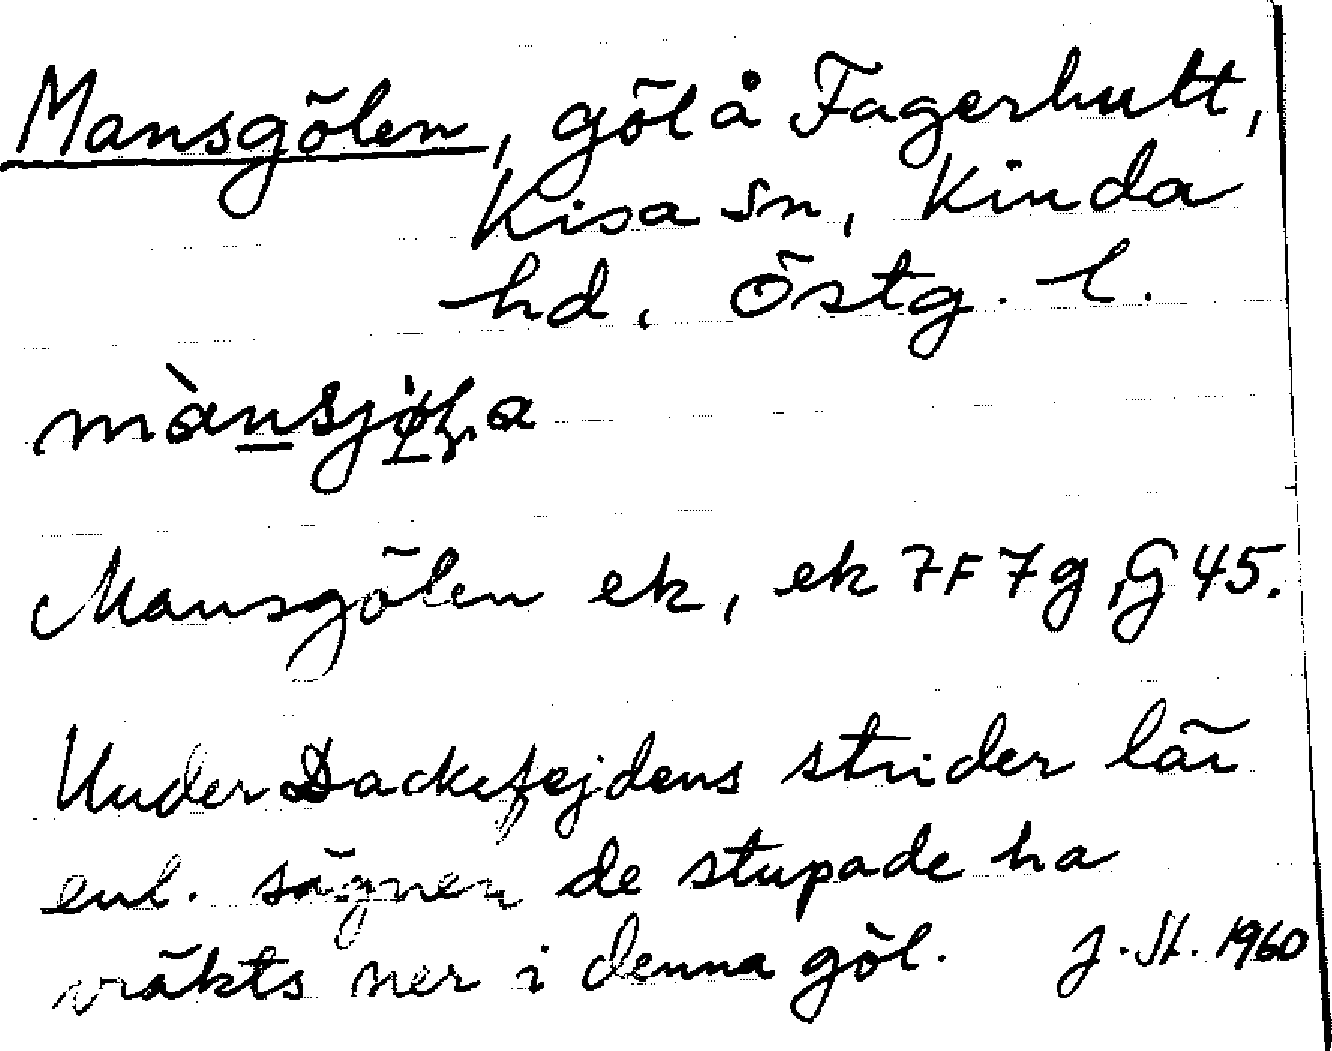 Mansgölen, göl å Fagerhult,
Kisa sn, Kinda
hd, Östg. l.
Mansgölen ek, ek 7F 7g, G 45.
Under Dackefejdens strider lär
enl. sägnen de stupade ha
vräkts ner i denna göl. J. St. 1960